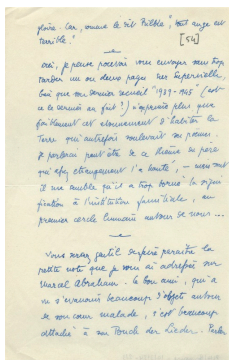 gloire. Car, comme le dit Rilke, "tout ange est
terrible."
[54]
Oui, je pense pouvoir vous envoyer sans trop
tarder un ou deux pages sur Supervielle,
bien que son dernier recueil "1939-1945" (est-
ce le dernier au fait?) n'exprime plus que
faiblement cet étonnement d'habiter la
Terre qui autrefois soulevait ses poèmes.
Je parlerai peut-être de ce thème du père
qui si étrangement l'a hanté, — mais
il me semble qu'il a trop borné la signi-
fication à l'institution familiale, au
premier cercle humain autour de nous...
Vous seriez gentil de faire paraître la
petite note que je vous ai adressée sur
Marcel Abraham. Le bon ami, qui a
vu s'évanouir beaucoup d'objets autour
de son cœur malade, s'est beaucoup
attaché à son Buch der Lieder.